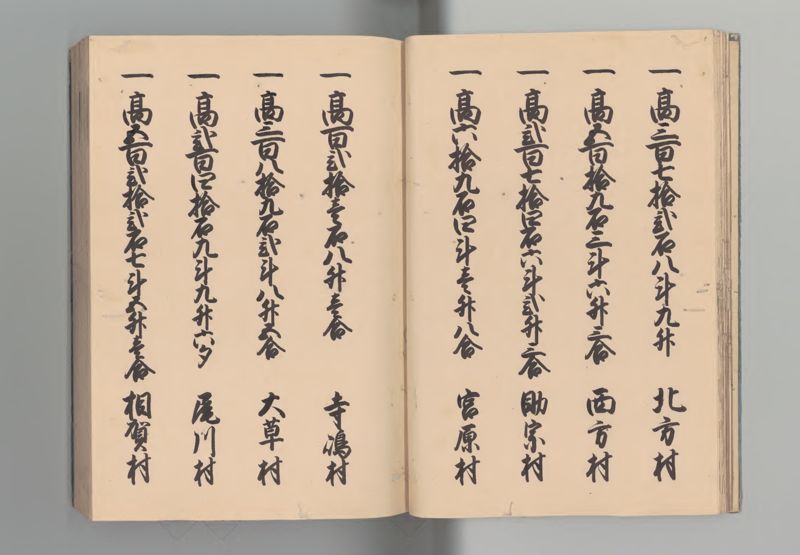 一 高三百七拾弐石八斗九升 北方村
一 高五百拾九石三斗六升三合 西方村
一 高弐百七拾四石六斗弐升三合 助宗村
一 高六拾九石四斗壱升八合 宮原村
一 高百弐拾壱石八升壱合 寺嶋村
一 高三百八拾九石弐斗八升五合 大草村
一 高弐百四拾石九斗九升六夕 尾川村
一 高五百弐拾弐石七斗五升壱合 相賀村